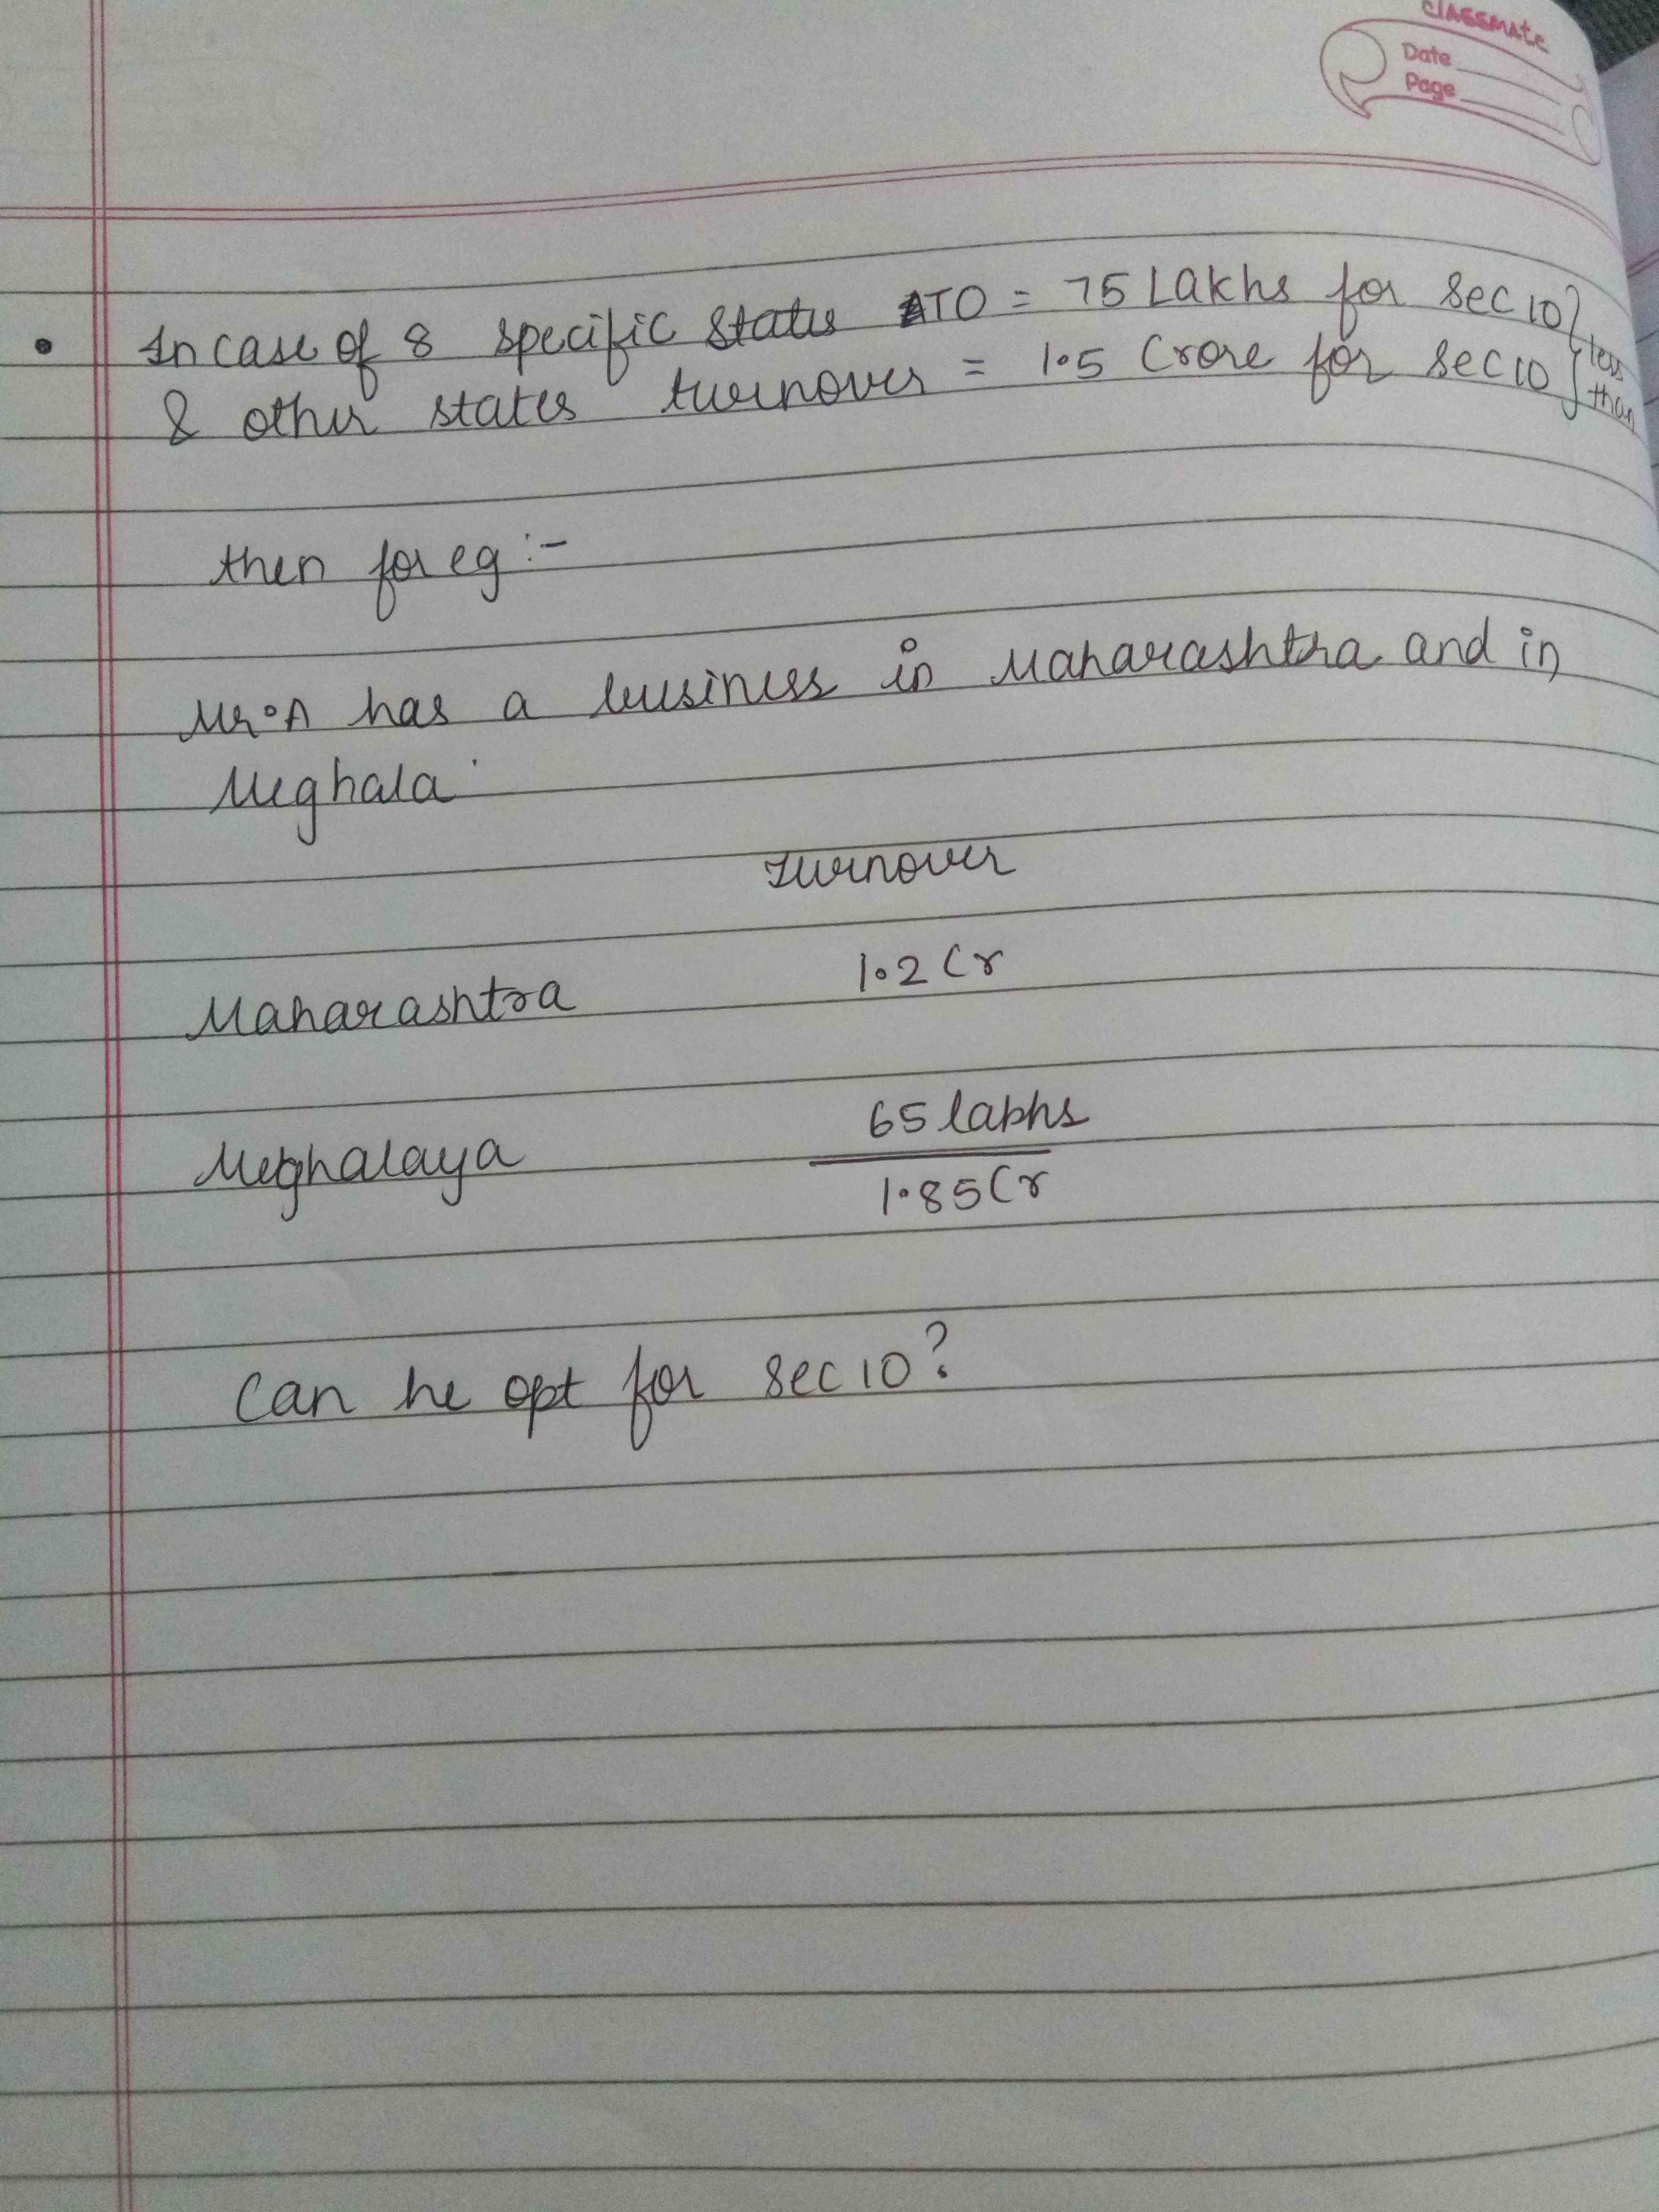 classmate
Date
Page
• In case of 8 specific states ATO = 75 Lakhs for sec 10 } less
& other states turnover = 1.5 Crore for sec 10 } than
then for eg :-
Mr. A has a business in Maharashtra and in
Meghala
Turnover
Maharashtra 1.2 Cr
Meghalaya 65 lakhs
1.85 Cr
Can he opt for sec 10?